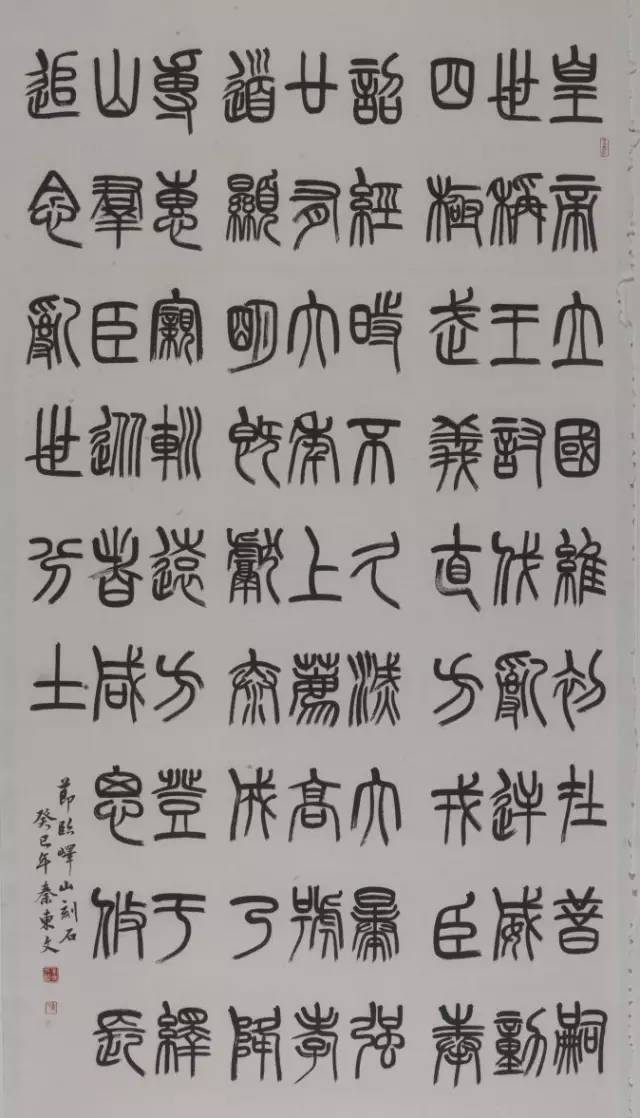 皇帝立國維初在昔嗣
世稱王討伐亂逆威動
四極武義直方戎臣奉
詔經時不久滅六暴強
廿有六年上薦高號孝
道顯明既獻泰成乃降
專惠寴䡅遠方登于繹
山羣臣從者咸思攸長
追念亂世分土
節臨嶧山刻石
癸巳年秦東文